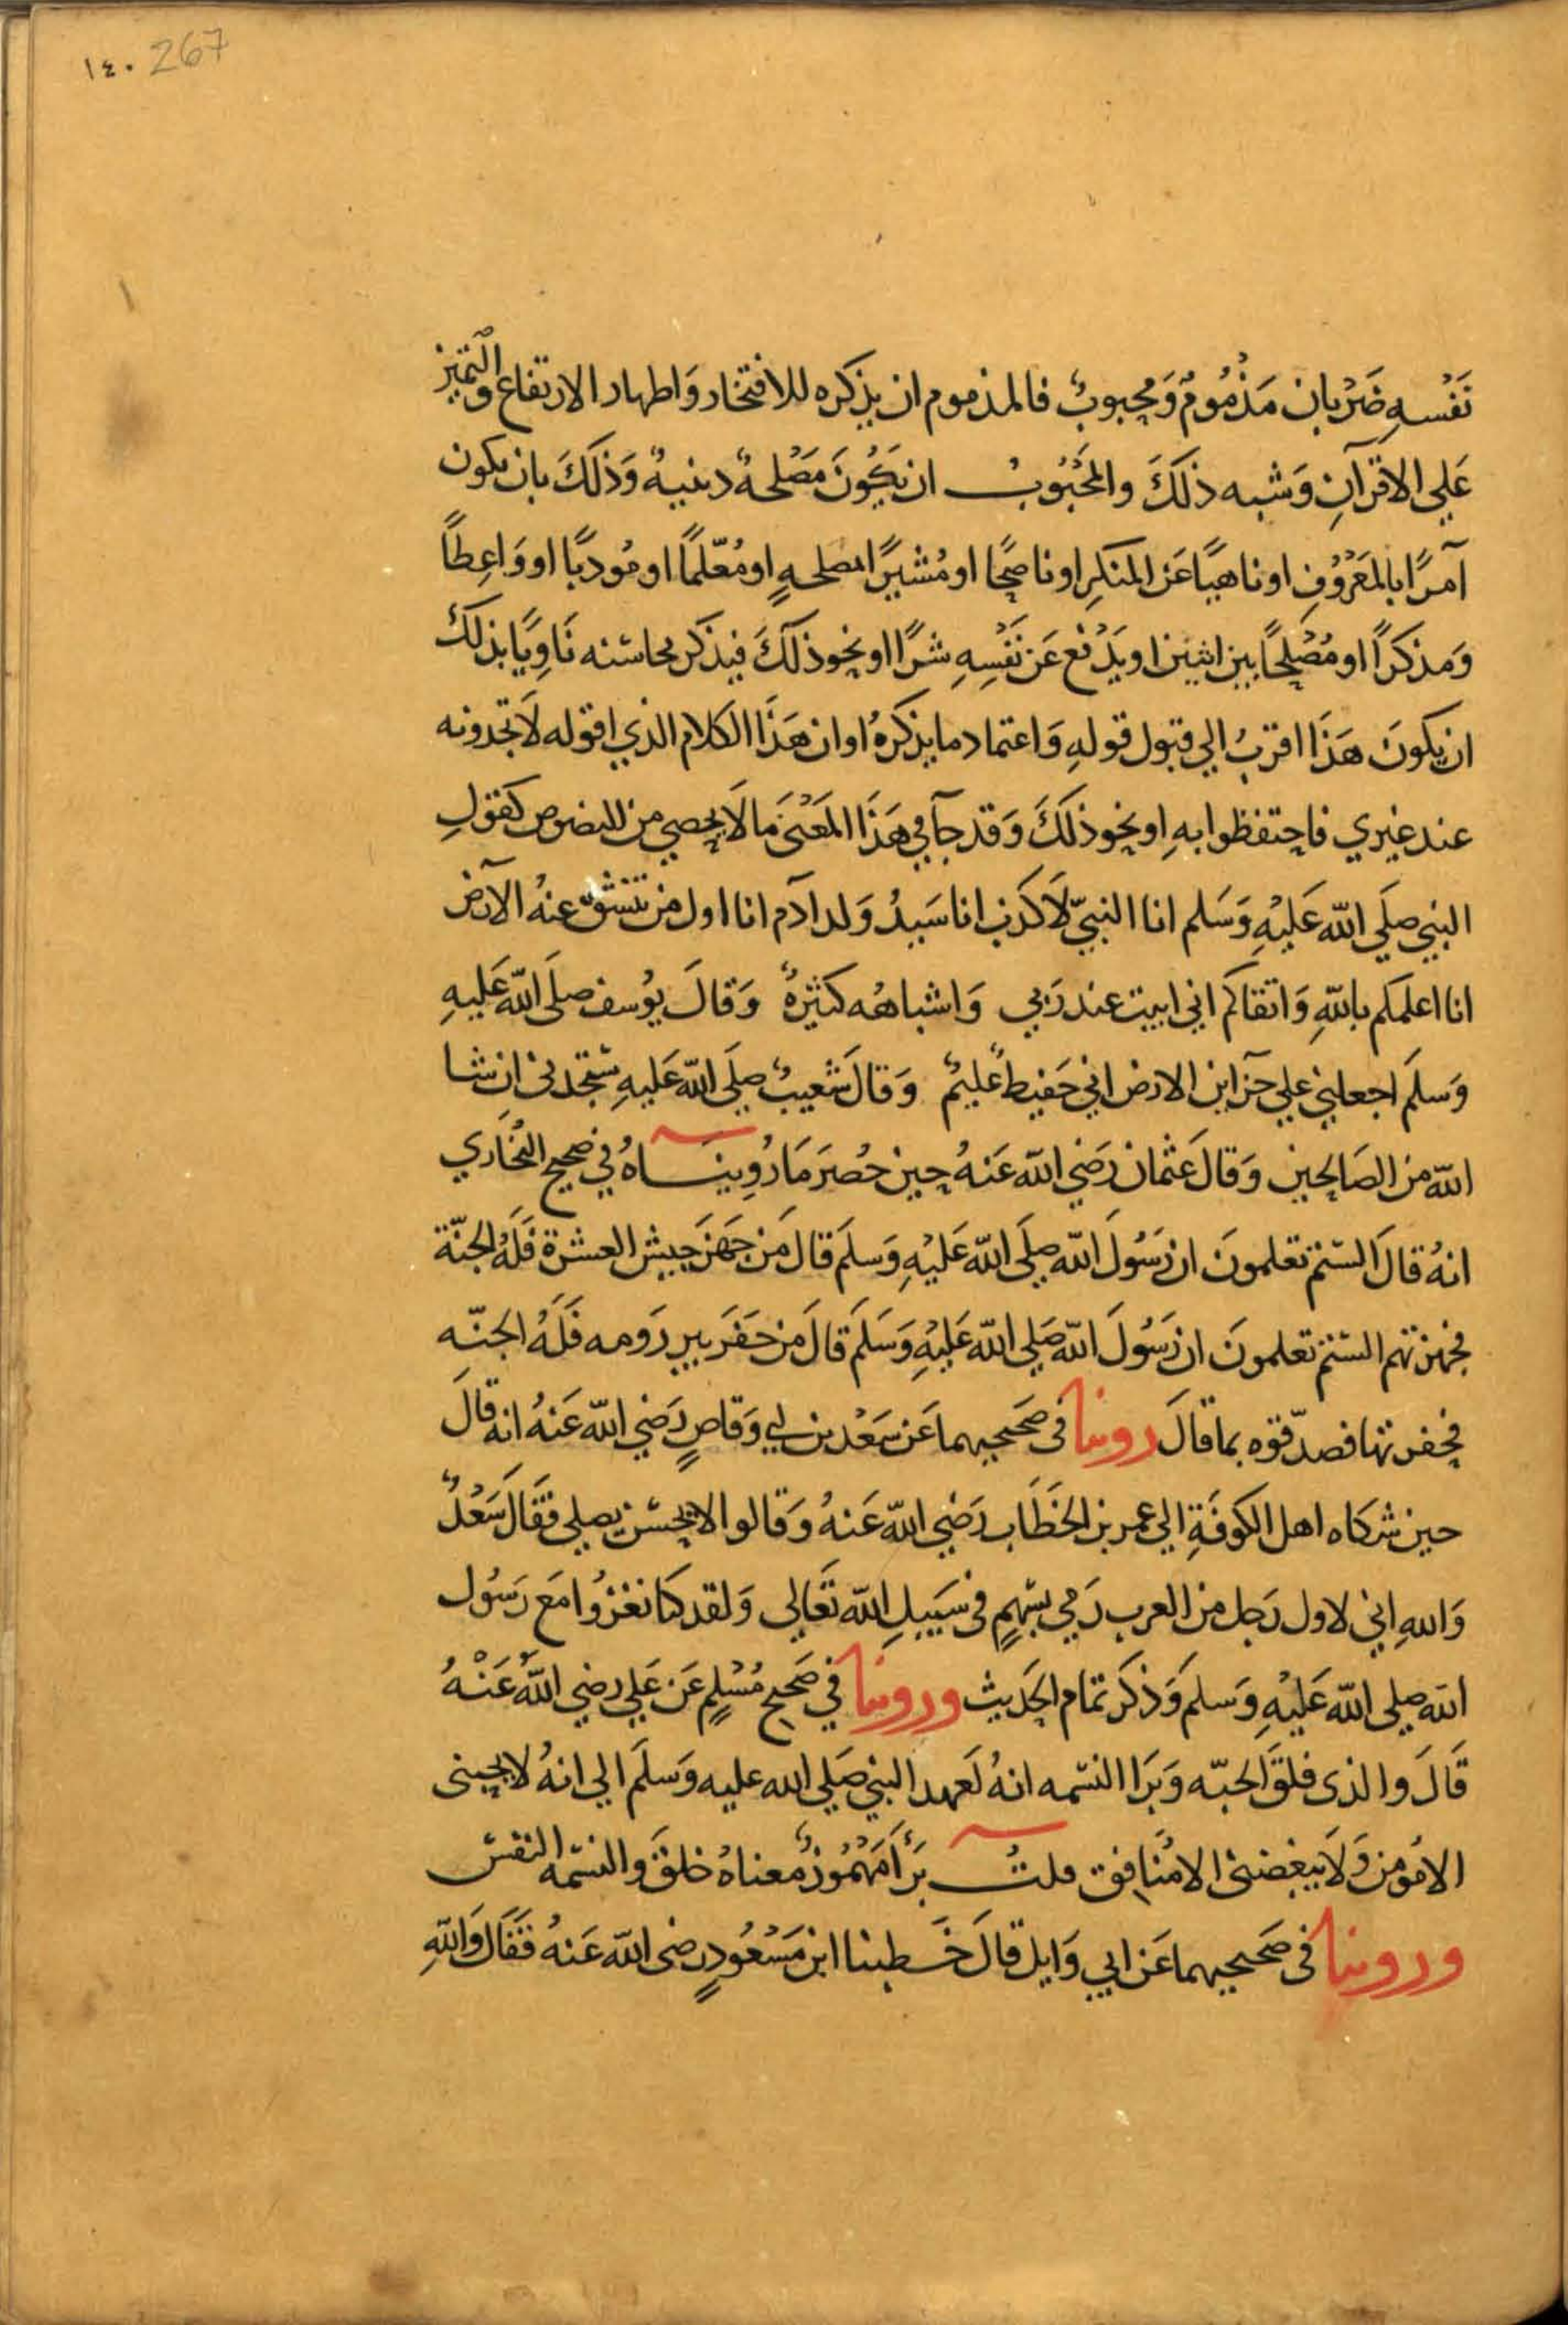 ١٤٠ 267
نَفْسِهِ ضَرْبان مَذْمُومٌ وَمحبوبٌ فالمذموم ان يذكره للافتخار وَاظهار الارتفاع والتميّز
عَلي الاقرآنِ وَشبه ذلكَ والمَحْبُوبُ ان يَكُونَ مَصْلحةٌ دينيةٌ وَذلكَ بان يكون
آمرًا بالمَعْرُوْفِ او ناهيًا عَن المنكرِ او ناصحًا او مُشيرًا بمصلحهٍ او مُعّلمًا او مُودبًا او وَاعِظاً
وَمذكرًا او مُصْلِحًا بين اثنين او يَدْفع عَن نَفْسِهِ شرًا او نحو ذلكَ فيذكر محاسنه نَاوِيًا بذلكَ
ان يكونَ هَذَا اقربُ الي قبول قولهِ وَاعتماد ما يذكرهُ او ان هَذَا الكلام الذي اقوله لَا تجدونه
عند غيري فاحتفظوا بهِ او نحو ذلكَ وَقد جآ في هَذَا المَعْنَى مَا لَا يحصي من النصوص كقولِ
النبي صلَي الله عَليْهِ وَسَلم انا النبيّ لَا كذب انا سَيدُ وَلد ادم انا اول من تنشقّ عنهُ الارض
انا اعلمكم باللهِ وَاتقاكم اني ابيت عند رَبي وَاشباههُ كثيرةٌ وَقالَ يوُسف صلَى اللهُ عَليهِ
وَسلمَ اجعلني علي خزاين الارض اني حَفيظٌ عَليمٌ وَقالَ شعيبٌ صلَي الله عَليهِ ستجدني ان شا
الله من الصَالحين وَقالَ عثمان رَضي الله عَنهُ حين حُصرَ مَا رُوِينَاهُ في صحيح البُخَاري
انهُ قالَ الستم تعلمونَ ان رَسُولَ الله صلَي الله عَليْهِ وَسلمَ قالَ مَن جَهزَ جيش العسرة فَلَهُ الجنّة
فجهزتهم الستم تعلمونَ ان رَسُولَ الله صَلي الله عَليْهِ وَسَلمَ قالَ من حَفَرَ بير رَومه فَلَهُ الجنّه
فحفرتها فصدّقوه بما قالَ روينا فى صَحيحيهما عَن سَعْد بن ابي وَقاصٍ رَضي الله عَنهُ انه قالَ
حين شكاه اهل الكوفَةِ الي عمر بن الخَطَاب رَضي الله عَنهُ وَقالوا لا يُحْسن يصلي فقَالَ سَعْدٌ
وَاللهِ اني لاول رَجل من العرب رَمي بسَهمٍ فى سَبيلِ الله تَعَالي وَلقد كنا نغزُوا مَع رَسُول
الله صلى الله عَليْهِ وَسلمَ وَذكرَ تمَام الحَديث وروينا في صَحيح مُسْلمٍ عَن عَلي رضي اللهُ عَنْهُ
قَالَ والذى فلقَ الحبّه وَبَرَا النسَمه انهُ لَعَهد النبي صَلي الله عليه وَسلمَ الي انهُ لا يحبنى
الا مُومن وَلَا يبغضنى الا مُنَافق قلتُ بَرَأَ مَهْمُوزٌ مُعناهُ خلقَ والنسَمه النفسَ
وروينا فى صَحيحيهما عَن ابي وَايل قالَ خَطبنا ابن مَسْعُودٍ رضى الله عَنهُ فقَالَ وَاللهِ